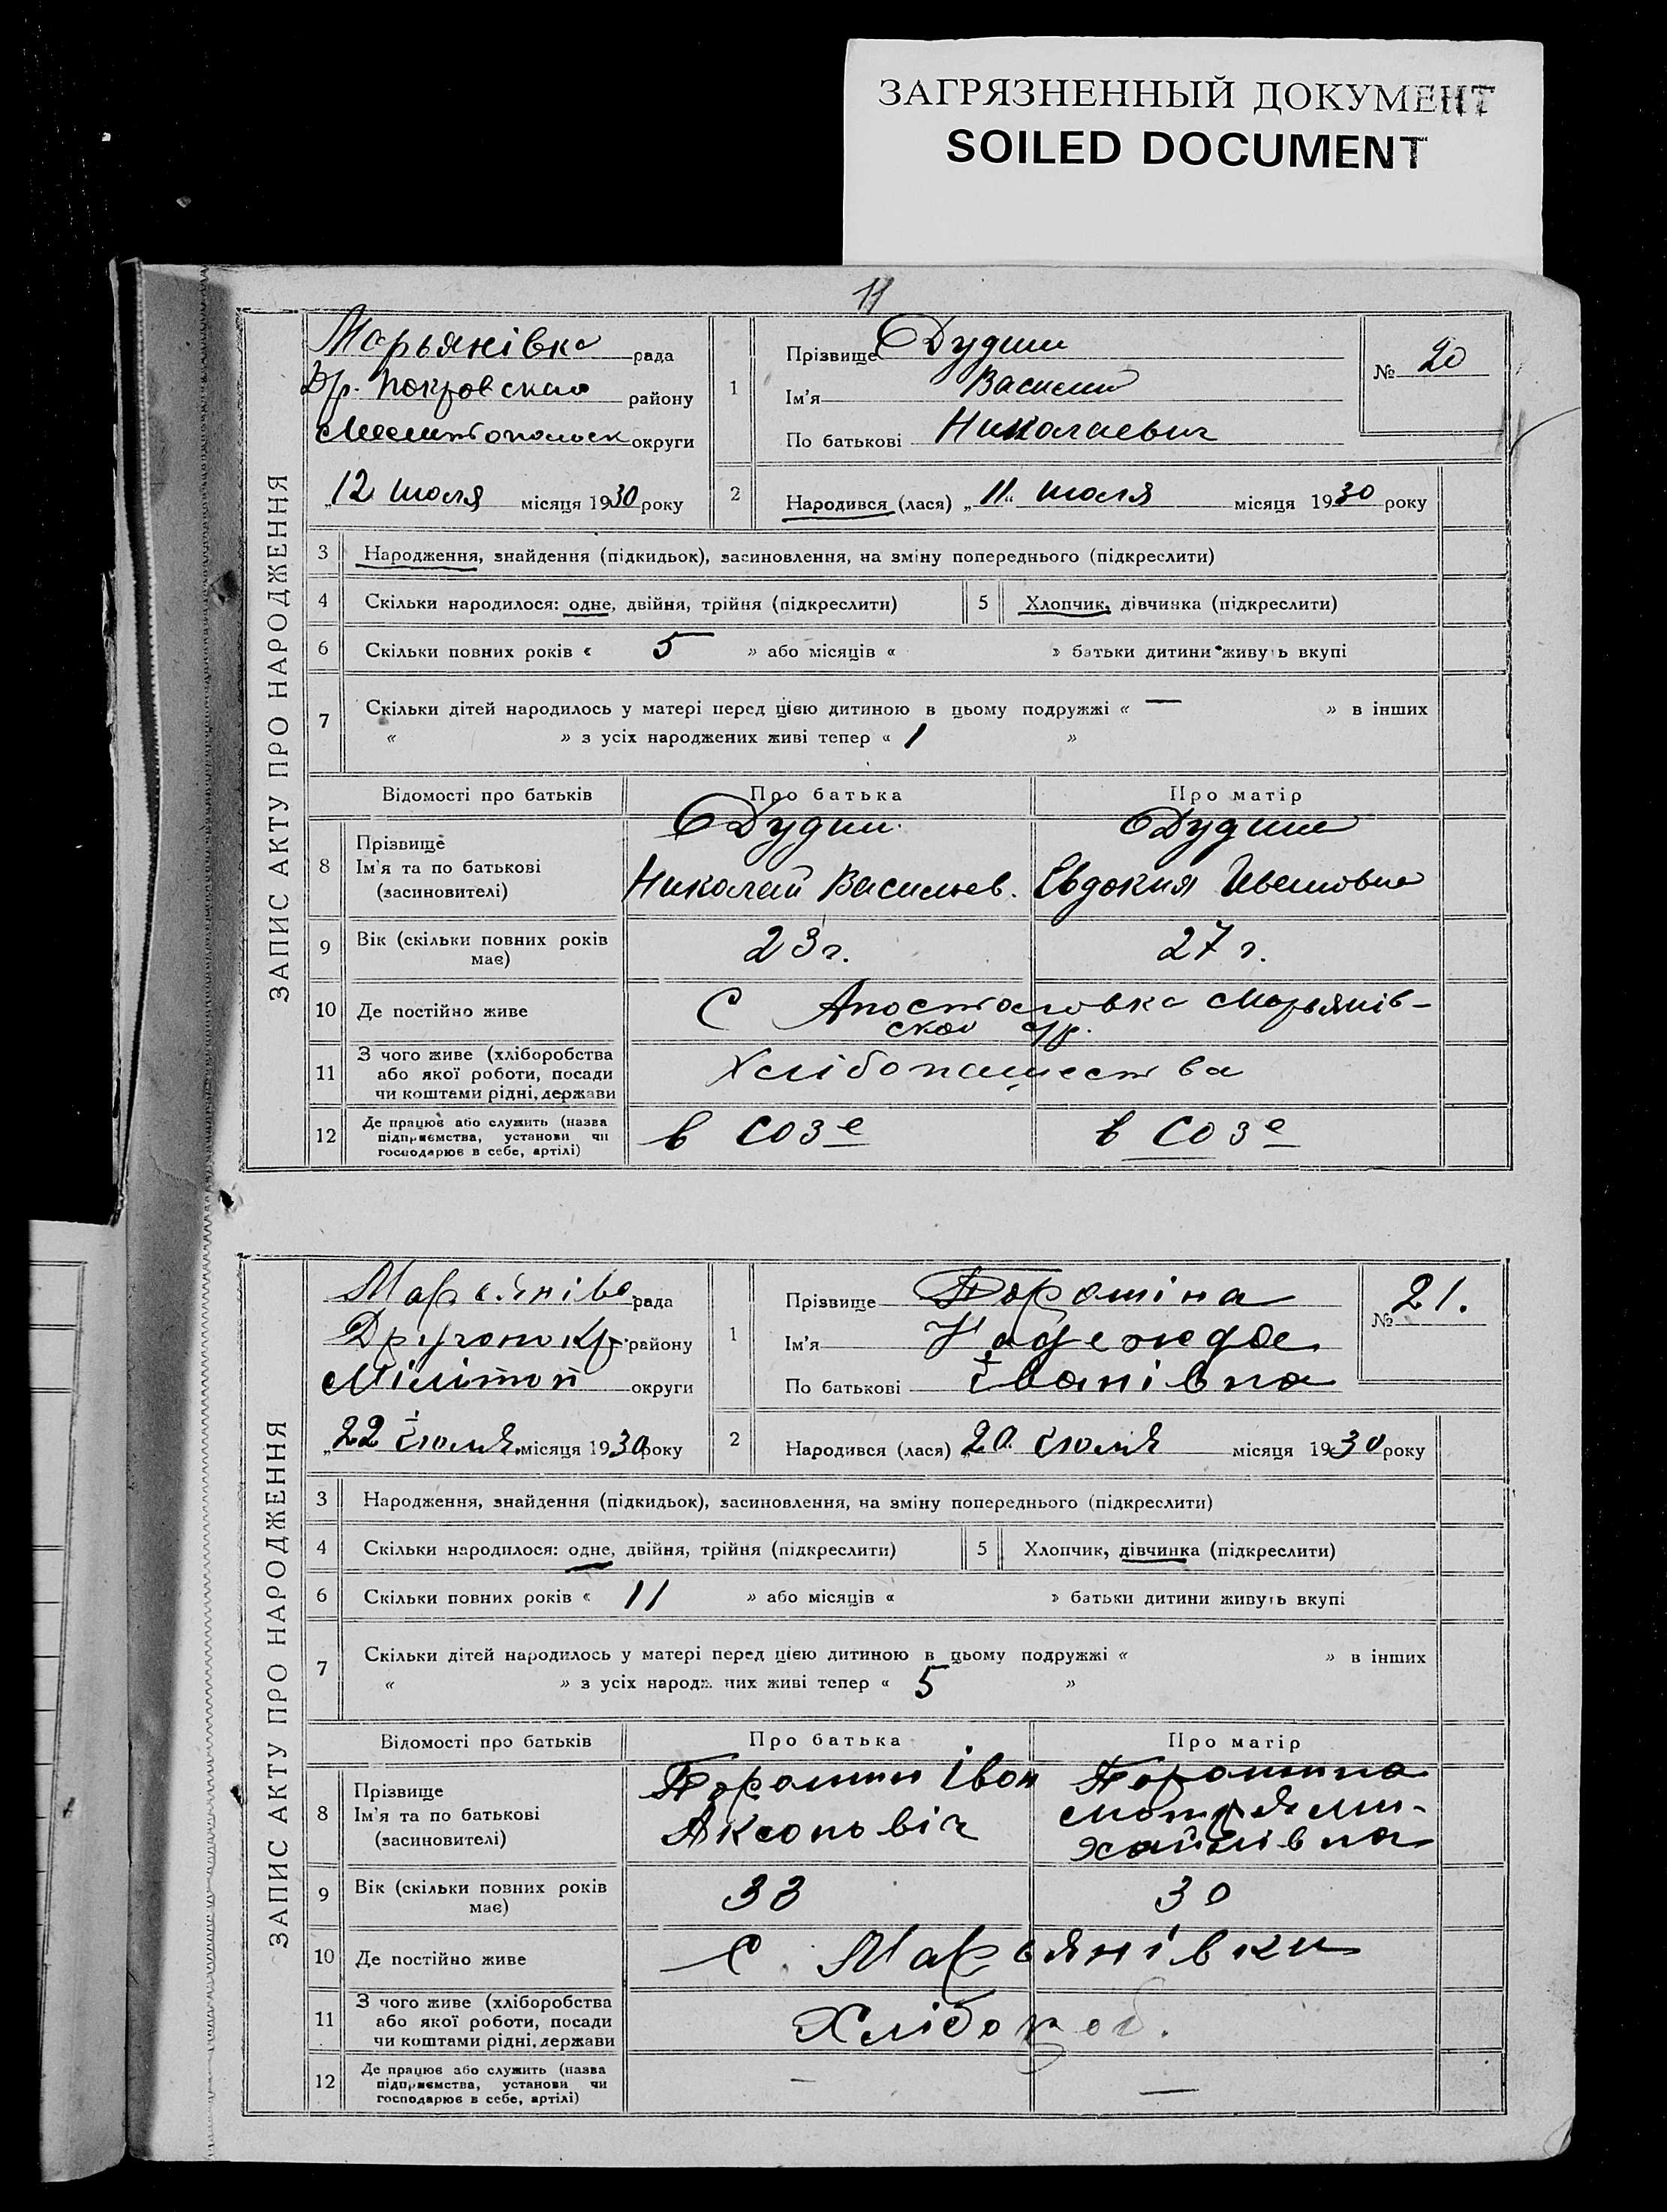 ЗАГРЯЗНЕННЫЙ ДОКУМЕНТ
SOILED DOCUMENT
11
ЗАПИС АКТУ ПРО НАРОДЖЕННЯ
Марьянівка рада
Др. Покровская району
Мелитопольск округи
„12 июля місяця 1930 року
1
Прізвище Дудин
Ім'я Василий
По батькові Николаевич
№ 20
2 Народився (лася) „11“ июля місяця 1930 року
3 Народження, знайдення (підкидьок), засиновлення, на зміну попереднього (підкреслити)
4 Скільки народилося: одне, двійня, трійня (підкреслити) 5 Хлопчик, дівчинка (підкреслити)
6 Скільки повних років « 5 » або місяців « » батьки дитини живуть вкупі
7 Скільки дітей народилось у матері перед цією дитиною в цьому подружжі « — » в інших
« » з усіх народжених живі тепер « 1 »
Відомості про батьків Про батька Про матір
8 Прізвище Ім'я та по батькові (засиновителі)
Дудин Николай Васильев.
Дудина Евдокия Ивановна
9 Вік (скільки повних років має) 23 г. 27 г.
10 Де постійно живе С Апостоловка Марьянів-
ской с/р.
11 З чого живе (хліборобства або якої роботи, посади чи коштами рідні, держави
Хлібопашества
12 Де працює або служить (назва підприємства, установи чи господарює в себе, артілі)
в созе в созе
ЗАПИС АКТУ ПРО НАРОДЖЕННЯ
Марьянів. рада
Другопокр. району
Мілітоп округи
„22 іюля місяця 1930 року
1
Прізвище Порошіна
Ім'я Надежда
По батькові Іванівна
№ 21.
2 Народився (лася) „20 іюля місяця 1930 року
3 Народження, знайдення (підкидьок), засиновлення, на зміну попереднього (підкреслити)
4 Скільки народилося: одне, двійня, трійня (підкреслити) 5 Хлопчик, дівчинка (підкреслити)
6 Скільки повних років « 11 » або місяців « » батьки дитини живуть вкупі
7 Скільки дітей народилось у матері перед цією дитиною в цьому подружжі « » в інших
« » з усіх народжених живі тепер « 5 »
Відомості про батьків Про батька Про матір
8 Прізвище Ім'я та по батькові (засиновителі)
Порошин Іван
Аксоновіч
Порошина
Мотря Ми-
хайлівна
9 Вік (скільки повних років має) 33 30
10 Де постійно живе С. Марьянівки
11 З чого живе (хліборобства або якої роботи, посади чи коштами рідні, держави
Хлібороб.
12 Де працює або служить (назва підприємства, установи чи господарює в себе, артілі)
— —